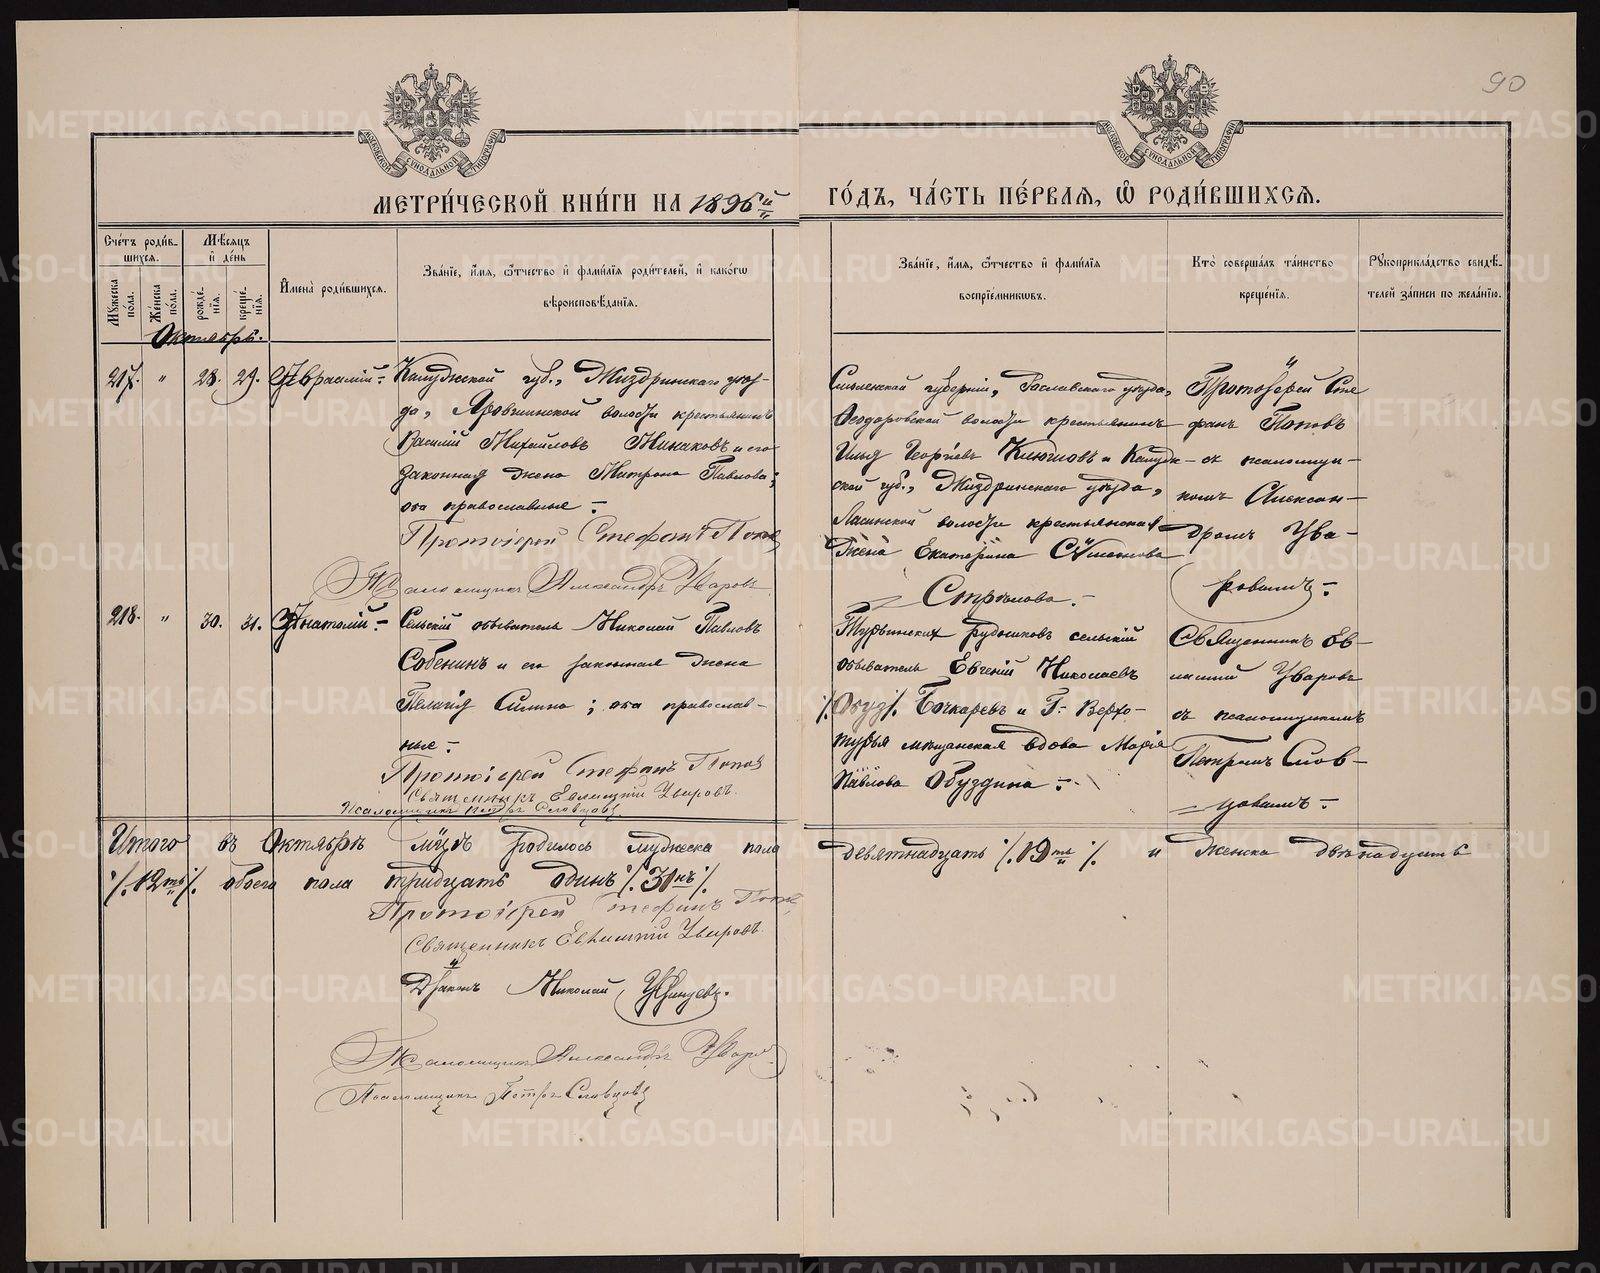 90
МОСКОВСКОЙ СѴНОДАЛЬНОЙ ТИПОГРАФІИ
МОСКОВСКОЙ СѴНОДАЛЬНОЙ ТИПОГРАФІИ
МЕТРИ́ЧЕСКОЙ КНИ́ГИ НА 1896й ГО́ДЪ, ЧА́СТЬ ПЕ́РВАѦ, Ѽ РОДИ́ВШИХСѦ.
Сче́тъ роди́в-
шихсѧ.
Мꙋ́жеска пола.
Же́нска по́ла.
Мѣ́сѧцъ
и҆ де́нь
рожде́нїѧ.
креще́нїѧ.
И҆мена̀ роди́вшихсѧ.
Зва́нїе, и҆́мѧ, ѻ҆́тчество и҆ фами́лїѧ роди́телей, и҆ како́гѡ
вѣроисповѣ́данїѧ.
Зва́нїе, и҆́мѧ, ѻ҆́тчество и҆ фами́лїѧ
воспрїе́мникѡвъ.
Кто̀ соверша́лъ та́инство
креще́нїѧ.
Рꙋкоприкла́дство свидѣ́-
телей за́писи по жела́нїю.
Октябрь.
217. " 28. 29. Авраамій.-
Калужской губ., Жиздринскаго уѣз-
да, волости крестьянинъ
Василій Михайловъ Минаковъ и его
законная жена Матрона Павлова;
оба православные.-
Протоіерей Стефанъ Попов
Псаломщикъ Александръ Уваровъ
Смоленской губерніи, Рославскаго уѣзда,
Ѳеодоровской волости крестьянинъ
Илья Георгіевъ Ключковъ и Калуж-
ской губ., Жиздринскаго уѣзда,
волости крестьянская
жена Екатерина Сѵмеонова
Стрѣлова.-
Протоіерей Сте
фанъ Поповъ
съ псаломщи-
комъ Алексан-
дромъ Ува-
ровымъ.-
218. " 30. 31. Анатолій.-
Сельскій обыватель Николай Павловъ
Собенинъ и его законная жена
Пелагія Силина; оба православ-
ные.-
Протоіерей Стефанъ Попов
Священникъ Евлампій Уваровъ.
Псаломщикъ Петръ Словцовъ.
Турьинскихъ рудниковъ сельскій
обыватель Евгеній Николаевъ
Бочкаревъ и г. Верхо-
турья мѣщанская вдова Марія
Павлова Обуздина.-
Священникъ Ев-
лампій Уваровъ
съ псаломщикомъ
Петромъ Слов-
цовымъ.-
Итого въ Октябрѣ м-цѣ родилось мужеска пола девятнадцать ./.19ть./. и женска двѣнадцать
./.12ть./. обоего пола тридцать одинъ ./.31нъ./.
Протоіерей Стефанъ Попов
Священникъ Евлампій Уваровъ.
Діаконъ Николай
Псаломщикъ Александръ Уваров
Псаломщикъ Петръ Словцовъ
METRIKI.GASO-URAL.RU